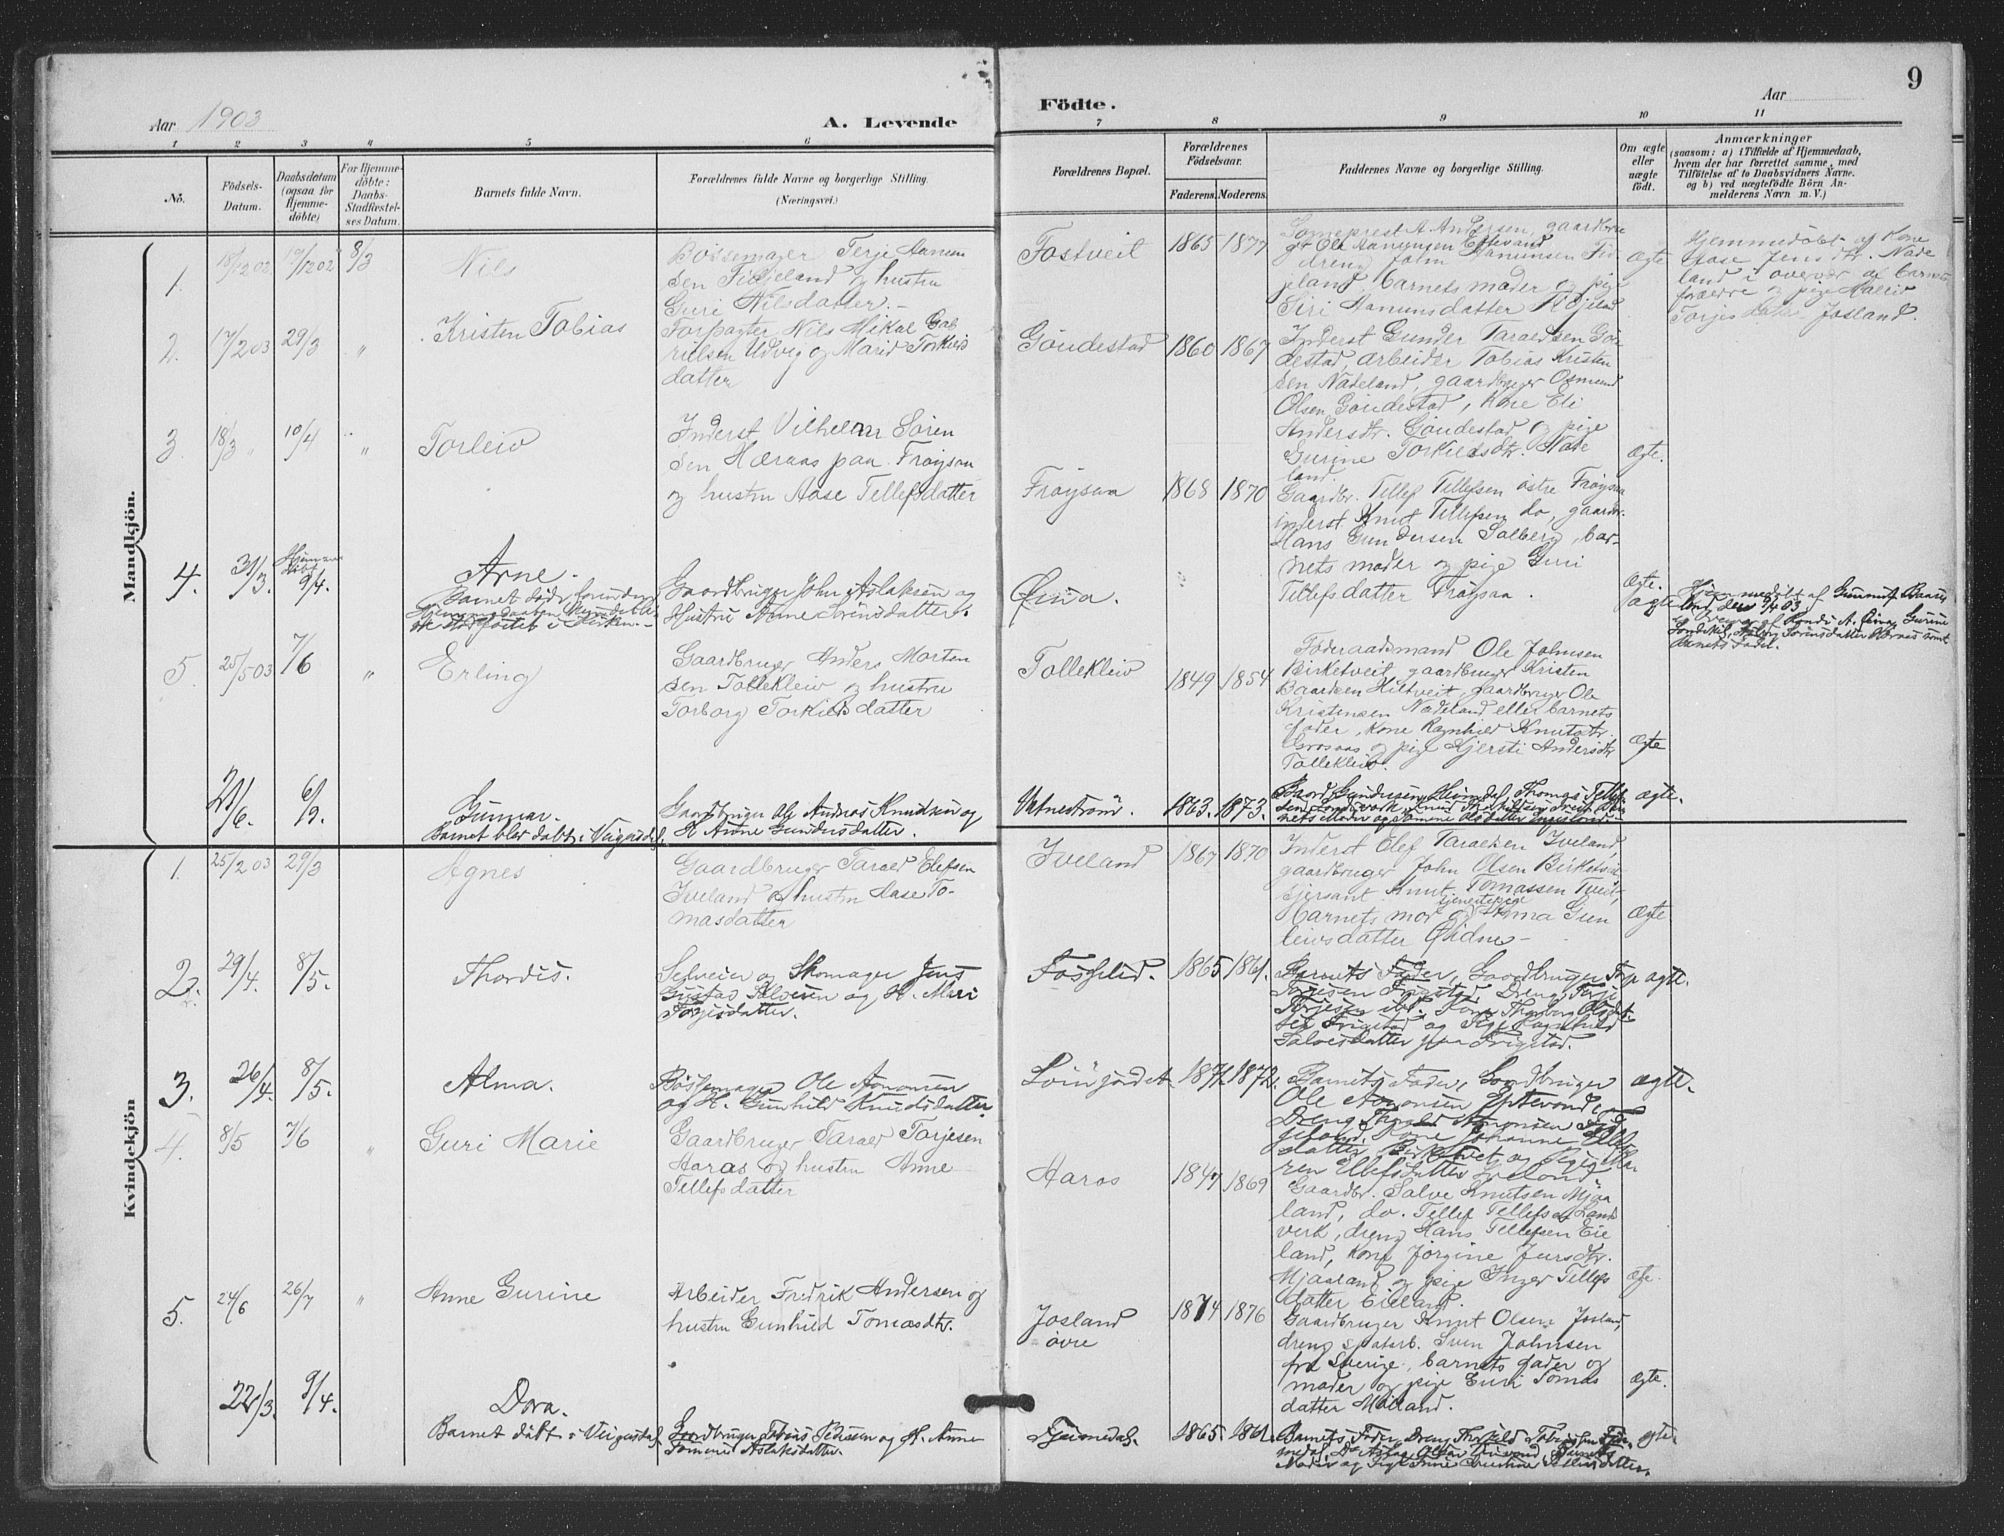 9
Aar 1903
A. Levende
Födte.
Aar
1 2 3 4 5 6 7 8 9 10 11
No.
Födsels-
Datum.
Daabsdatum
(ogsaa for
Hjemme-
döbte)
For Hjemme-
döbte:
Daabs-
Stadfæstel-
ses Datum.
Barnets fulde Navn.
Forældrenes fulde Navne og borgerlige Stilling.
(Næringsvei.)
Forældrenes Bopæl.
Forældrenes
Födselsaar.
Faderens. Moderens.
Faddernes Navne og borgerlige Stilling.
Om ægte
eller
uægte
födt.
Anmærkninger
(saasom: a) i Tilfælde af Hjemmedaab,
hvem der har forrettet samme, med
Tilföielse af to Daabsvidners Navne.
og b) ved uægtefödte Börn An-
melderens Navn m. V.)
Mandkjön.
1. 18/12 02 19/12 02 8/3
Nils
Bössemager Terje Hanun
sen Fidjeland og hustru
Guri Nilsdatter.
Fostveit
1865 1877
Sogneprest A. Andersen, gaardbru
ger Ole Aanunsen Eftevand
dreng John Aanunsen Fid
jeland, barnets moder og pige
Siri Aanunsdatter
Ægte
Hjemmedöbt af Kone
Aase Jensdtr. Nade
land i overvær af barnets
forældre og pige
Torjesdatter Josland.
2. 17/2 03 29/3 "
Kristen Tobias
Forpagter Nils Mikal Gab
rielsen Udvig og Marid Torkilds
datter
Göudestad
1860 1867
Inderst Gunder Taraldsen Göu
destad, arbeider Tobias Kristen
sen Nadeland, gaardbruger Osmund
Olsen Göudestad, kone Eli
Andersdtr. Göudestad og pige
Gurine Torkildsdtr. Nade
land.
Ægte.
3. 18/3 " 10/4 "
Torleiv
Inderst Vilhelm Sören
sen Høraas paa Fröysaa
og hustru Aase Tellefsdatter
Fröysaa
1868 1870
Gaardbr. Tellef Tellefsen östre Fröysaa
inderst Knut Tellefsen do, gaardbr.
Hans Gundersen Solberg, bar-
nets moder og pige Guri
Tellefsdatter Fröysaa.
Ægte.
4. 31/3. Hjemme
döbt 9/4.
Arne.
Barnet döde forinden
Gaardbruger John Aslaksen og
Hustru Anne Sörinsdatter.
Öina.
ægte
Hjemmedöbt af Gunnuf Baards
land den 9/4 03
Barnets Fader.
5. 25/5 03 7/6 "
Erling
Gaardbruger Anders Morten
sen Tollekleiv og hustru
Torborg Torkildsdatter
Tollekleiv
1849 1854
Föderaadsmand Ole Johnsen
Birketveit, gaardbruger Kristen
Baardsen Hiltveit, gaardbruger Ole
Kristensen Nadeland eller barnets
fader, kone Ragnhild Knutsdtr.
Grosaas og pige Kjersti Andersdtr
Tollekleiv.
Ægte
21/6. 6/9.
Gunnar.
Barnet blev döbt i Veigusdal.
Gaardbruger Ole Andreas Knudsen og
H. Anne Gundersdatter.
Vatneström.
1863. 1873.
Baard Gundersen Heimdal, Thomas Tellef
ægte.
Kvindekjön
1. 25/2 03 29/3
Agnes
Gaardbruger Tarald Elefsen
Iveland og hustru Aase To-
masdatter
Iveland
1867 1870
Inderst Elef Taraldsen Iveland,
gaardbruger John Olsen Birketveit
sjersant Knut Tomassen Tveit,
tjenestepige
barnets mor og Anna Gun
leivsdatter
Ægte
2. 29/4. 8/5.
Thordis.
Selveier og Skomager Jens
Gustav Salvesen og H. Mari
Torjisdatter.
Fossheia.
1865. 1861.
Barnets Fader, Gaardbruger
Torjesen Frigstad, Dreng Terje
Torjesen ibd. Kone Thorborg Olsdat-
ter Frigstad og Pige Ragnhild
Salvesdatter paa Frigstad.
ægte.
3. 26/4. 8/5.
Alma.
Bössemager Ole Aanonsen
og H. Gunhild Knudsdatter.
1872. 1872.
Barnets Fader, Gaardbruger
Ole Aanonsen Eptevand,
Dreng Thomas Aanonsen Fid
jeland, Kone Johanne
datter Birketveit og Pige Ka
ren Ellefsdatter Iveland
ægte.
4. 8/5 7/6 "
Guri Marie
Gaardbruger Tarald Torjesen
Haraas og hustru Anne
Tellefsdatter
Haros
1847 1869
Gaardbr. Salve Knutsen Mjaa
land, do. Tellef Tellefsen Land
verk, dreng Hans Tellefsen Eie
land, kone Jörgine Jursdtr.
Mjaaland og pige Inger Tellefs
datter Eieland.
Ægte.
5. 24/6 26/7 "
Anne Gurine
Arbeider Fredrik Andersen og
hustru Gunhild Tomasdtr.
Josland
övre
1874 1876
Gaardbruger Knut Olsen Josland,
dreng spatarb. Sven Johnsen
fra Sverige, barnets fader og
moder og pige Guri Tomas
datter Möiland.
Ægte.
22/3. 9/4.
Dora.
Barnet döbt i Veigusdal
Gaardbruger Tobias Pedersen og H. Anne
Tomine Aslaksdatter.
1865. 1861.
Barnets Fader, Dreng Thorkild Tobiassen
ægte.